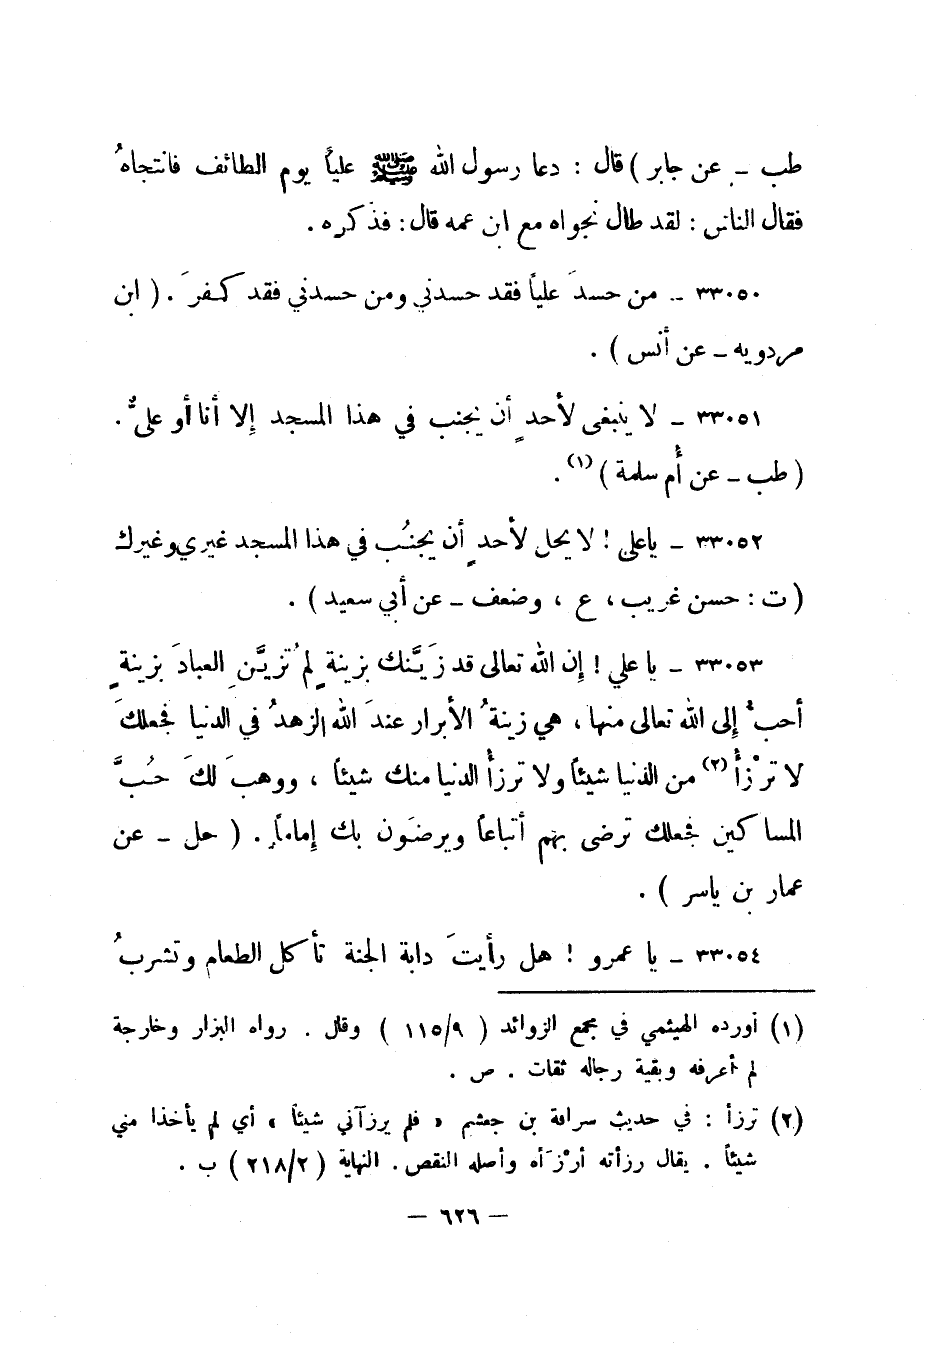 طب ـ عن جابر ) قال : دعا رسول الله ﷺ علياً يوم الطائف فانتجاهُ
فقال الناس : لقد طال نجواه مع ابن عمه قال : فذكره .
٣٣٠٥٠ ـ من حسدَ علياً فقد حسدني ومن حسدني فقد كفرَ . ( ابن
مردويه ـ عن أنس ) .
٣٣٠٥١ ـ لا ينبغى لأحدٍ أن يجنب في هذا المسجد إلا أنا أو علىٌّ .
( طب ـ عن أُم سلمة )(١) .
٣٣٠٥٢ ـ ياعلى ! لا يحل لأحدٍ أن يجنُب في هذا المسجد غيري وغيرك
( ت : حسن غريب ، ع ، وضعف ـ عن أبي سعيد ) .
٣٣٠٥٣ ـ يا علي ! إن الله تعالى قد زَيَّنك بزينةٍ لم تُزيَّنِ العبادَ بزينةٍ
أحبُّ إلى الله تعالى منها ، هي زينةُ الأبرار عندَ الله الزهدُ في الدنيا فجعلكَ
لا ترْزأُ(٢) من الدنيا شيئاً ولا ترزأُ الدنيا منك شيئاً ، ووهبَ لكَ حُبَّ
المساكين فجعلك ترضى بهم أتباعاً ويرضَون بك إماماً . ( حل ـ عن
عمار بن ياسر ) .
٣٣٠٥٤ ـ يا عمرو ! هل رأيتَ دابة الجنة تأكل الطعام وتشربُ
(١) أورده الهيثمي في مجمع الزوائد ( ١١٥/٩ ) وقال . رواه البزار وخارجة
لم أعرفه وبقية رجاله ثقات . ص .
(٢) ترزأ : في حديث سراقة بن جعشم « فلم يرزآني شيئاً » أي لم يأخذا مني
شيئاً . يقال رزأته أرْزَأه وأصله النقص . النهاية ( ٢١٨/٢ ) ب .
— ٦٢٦ —